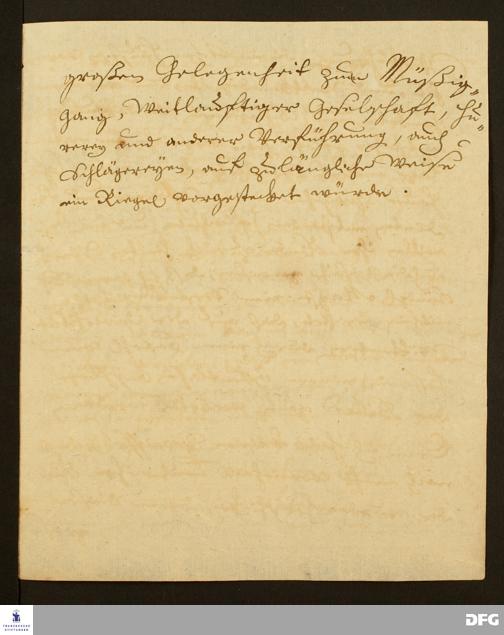 großen Gelegenheit zum Müßig-
gang, Weitläufftiger Geselschaft, Hu-
rerey und anderer Verführung, auch
Schlägereyen, auf zulängliche Weise
ein Riegel vorgestecket würde.
FRANCKESCHE
STIFTUNGEN
DFG